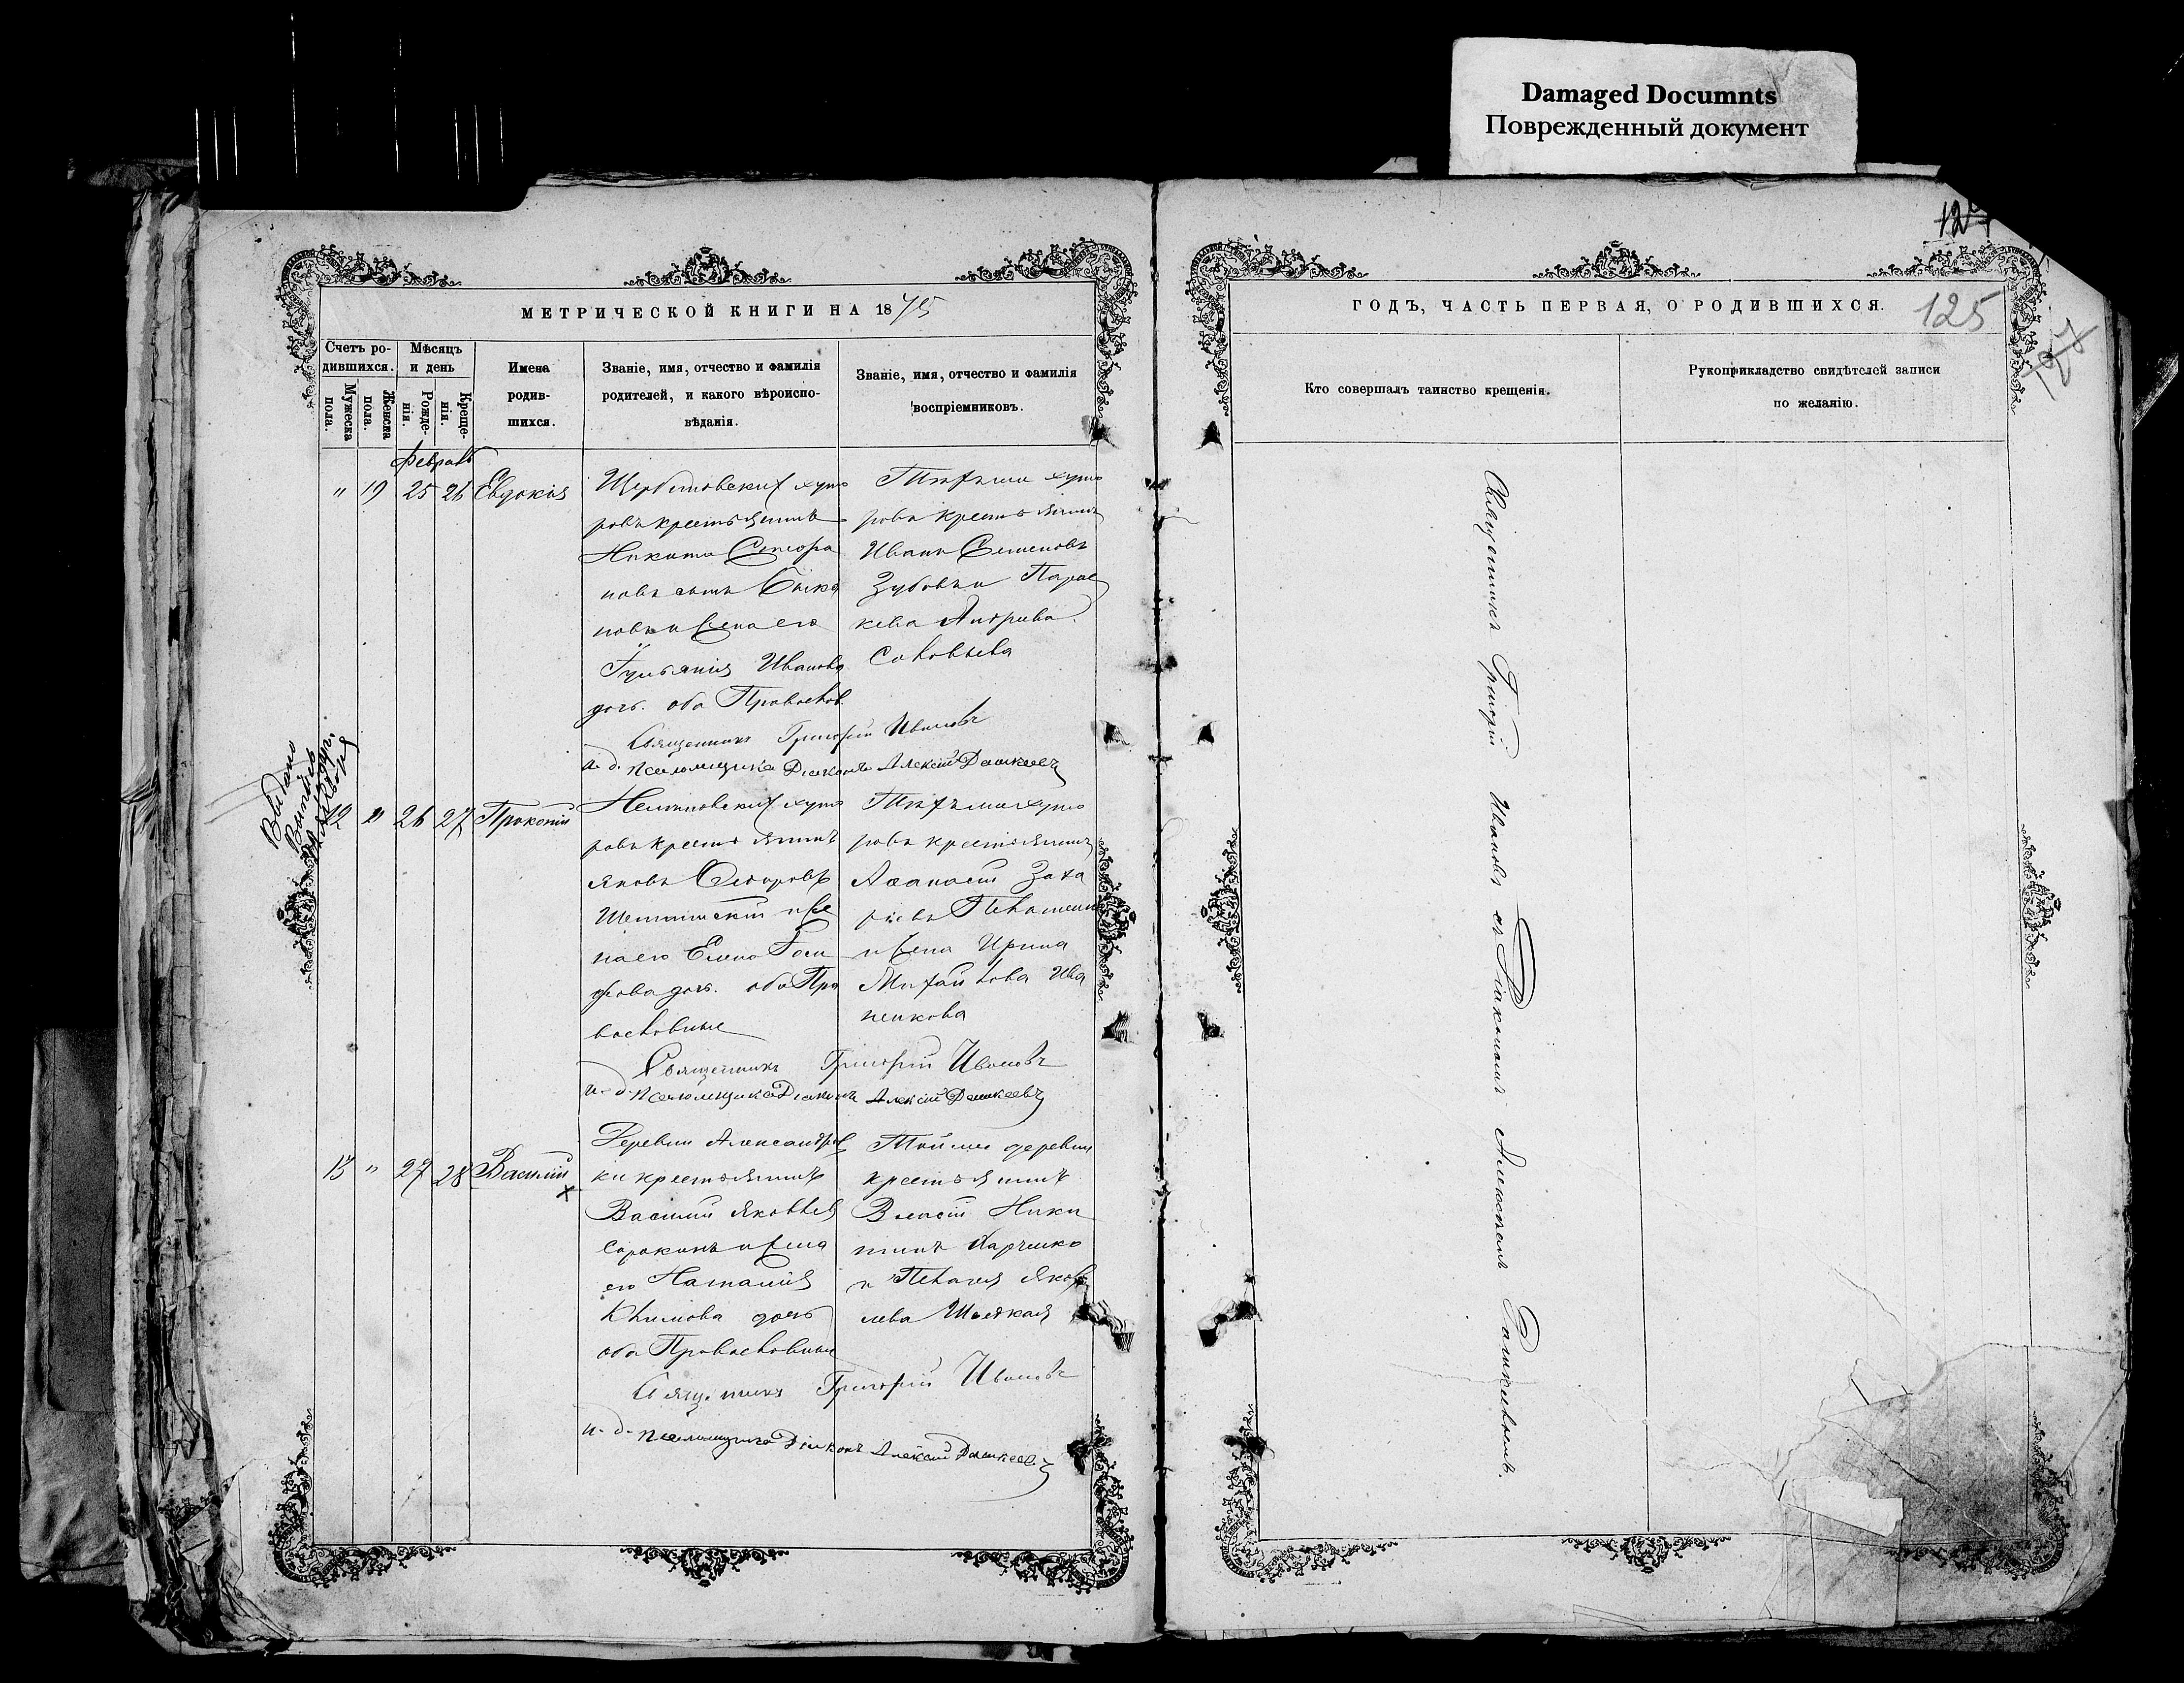 Damaged Documnts
Поврежденный документ
125
МЕТРИЧЕСКОЙ КНИГИ НА 1875
ГОДЪ, ЧАСТЬ ПЕРВАЯ, О РОДИВШИХСЯ.
Счетъ ро-
дившихся.
Мужеска
пола.
Женска
пола.
Мѣсяцъ
и день
Рожде-
нія.
Креще-
нія.
Имена
родив-
шихся.
Званіе, имя, отчество и фамилія
родителей, и какого вѣроиспо-
вѣданія.
Званіе, имя, отчество и фамилія
воспріемниковъ.
Кто совершалъ таинство крещенія.
Рукоприкладство свидѣтелей записи
по желанію.
Февраль
" 19 25 26 Евдокія
хуто
ровъ крестьянинъ
Никита
новъ сынъ
новъ и жена его
Іуліанія Иванова
дочь. оба Православ.
Тѣхъ же хуто
ровъ крестьянинъ
Иванъ Семеновъ
Зубовъ и Парас
кева Андреева
Соловьева
Священникъ Григорій Ивановъ
и. д. псаломщика Діаконъ Алексій Дашкеевъ
Выдано
12 " 26 27 Прокопій
хуто
ровъ крестьянинъ
Яковъ Сидоровъ
и же
на его Елена
дочь. оба Пра
вославные
Тѣхъ же хуто
ровъ крестьянинъ
Аѳанасій Заха
ріевъ
и жена Ирина
Михайлова Ива
ненкова
Священникъ Григорій Ивановъ
и. д. псаломщика Діаконъ Алексій Дашкеевъ
13 " 27 28 Василій
Деревни Александров
ки крестьянинъ
Василий Яковлев
Сорокинъ и жена
его Наталія
Климова дочь
оба Православные
Той же деревни
крестьянинъ
Власій Ники
тинъ
и Пелагея Яков
лева
Священникъ Григорій Ивановъ
и. д. псаломщика Діаконъ Алексій Дашкеевъ
Священникъ Григорій Ивановъ съ Діакономъ Алексѣемъ Дашкеевымъ.